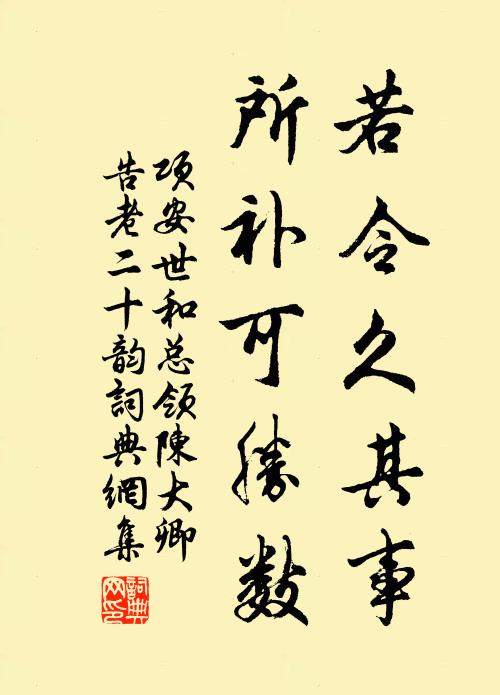 若令久其事
所补可勝数
项安世和总领陳大卿
告老二十韵詞典網集